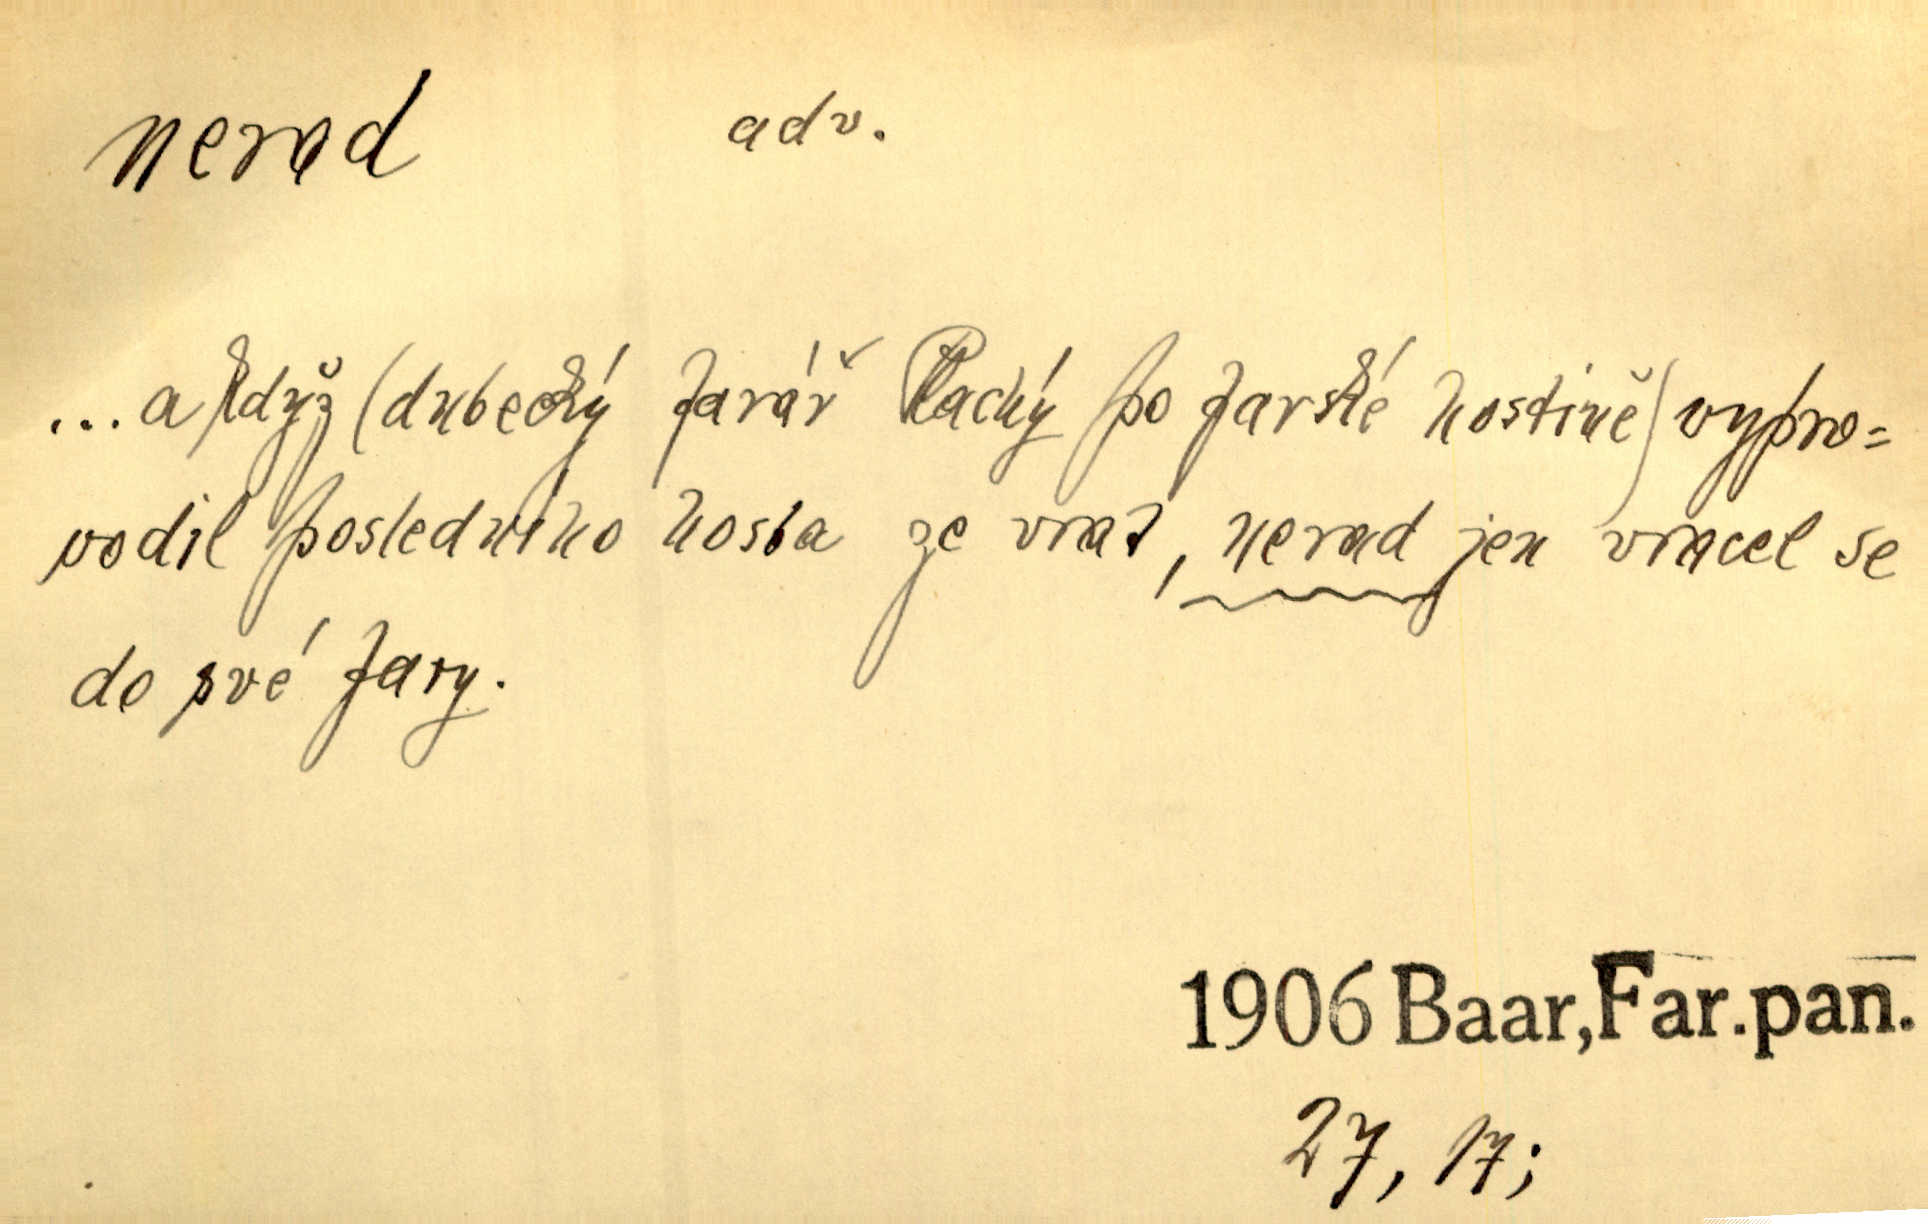 nerad adv.
... a když (dubecký farář Plachý po farské hostině) vypro=
vodil posledního hosta ze vrat, nerad jen vracel se
do své fary.
1906 Baar, Far. pan.
27, 17;